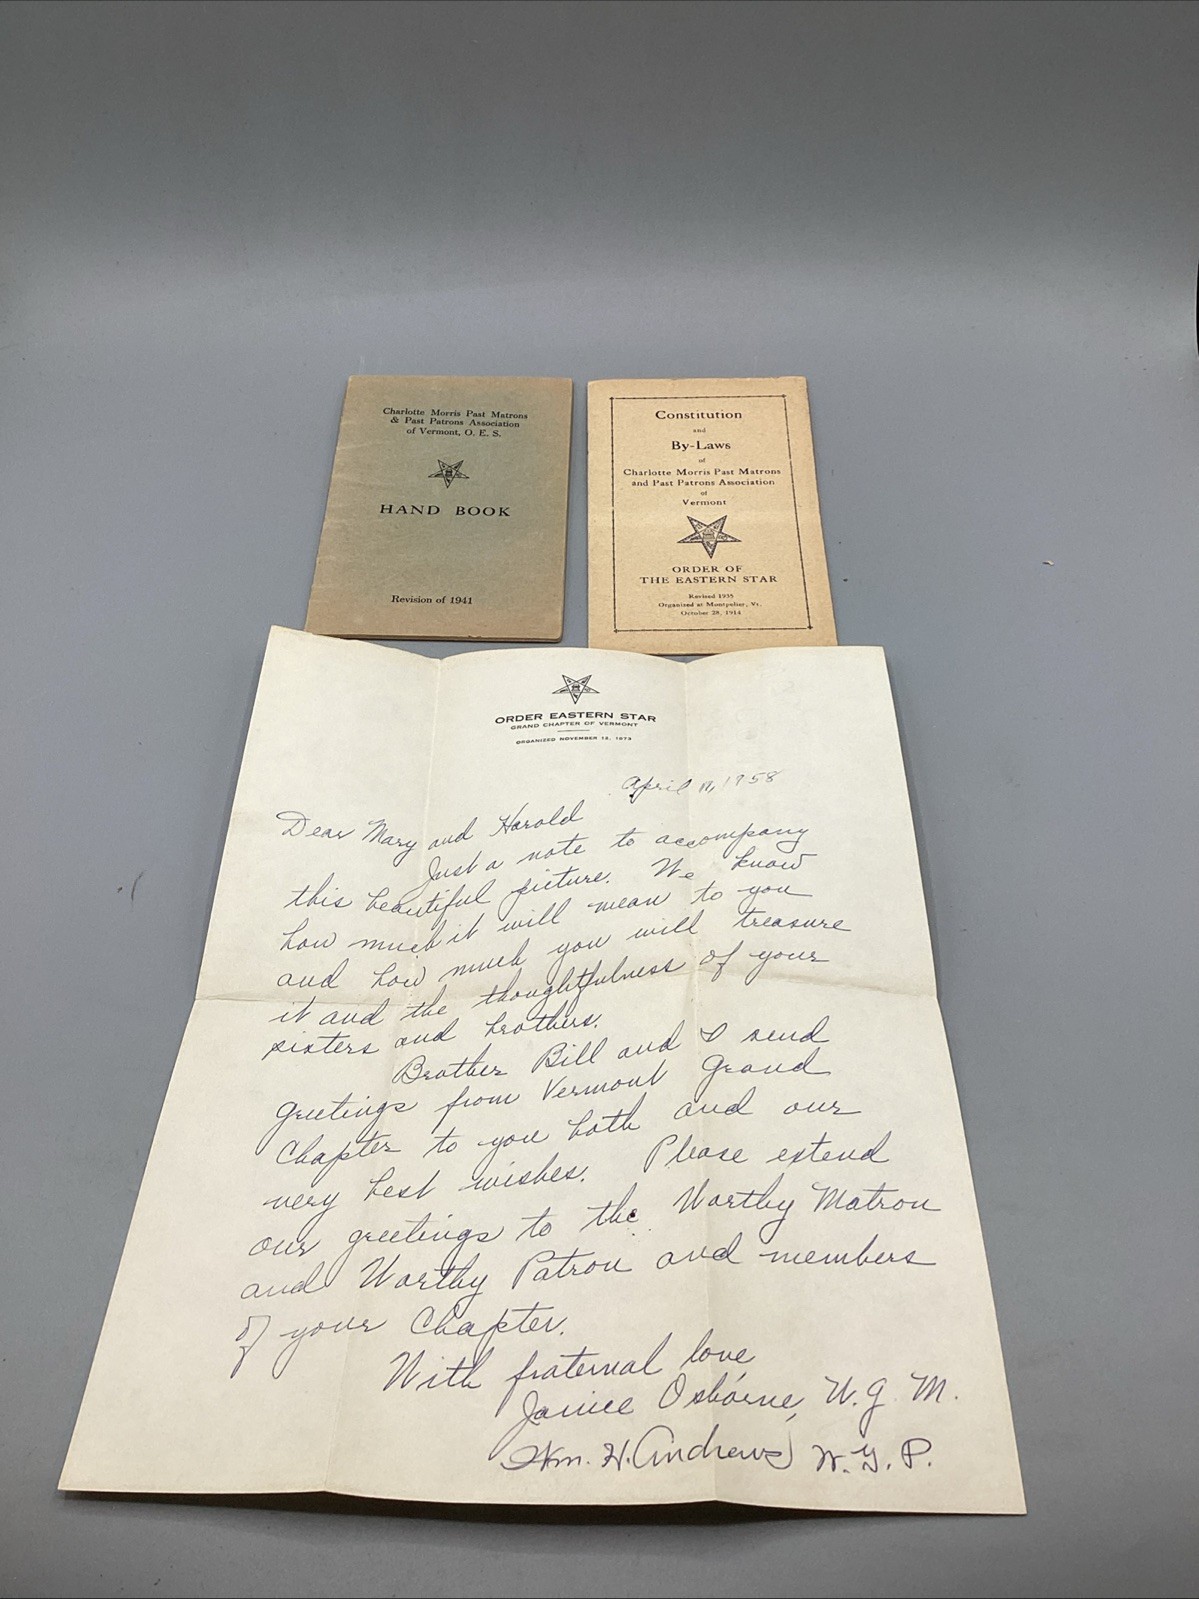 Charlotte Morris Past Matrons
& Past Patrons Association
of Vermont, O. E. S.
HAND BOOK
Revision of 1941
Constitution
and
By-Laws
of
Charlotte Morris Past Matrons
and Past Patrons Association
of
Vermont
ORDER OF
THE EASTERN STAR
Revised 1935
Organized at Montpelier, Vt.
October 28, 1914
ORDER EASTERN STAR
GRAND CHAPTER OF VERMONT
ORGANIZED NOVEMBER 12, 1873
April 1958
Dear Mary and Harold
Just a note to accompany
this beautiful picture. We know
how much it will mean to you
and how much you will treasure
it and the thoughtfulness of your
sisters and brothers.
Brother Bill and I send
greetings from Vermont Grand
Chapter to you both and our
very best wishes. Please extend
our greetings to the Worthy Matron
and Worthy Patron and members
of your Chapter.
With fraternal love,
Janice Osborne, W. G. M.
Wm. H. Andrews W. G. P.